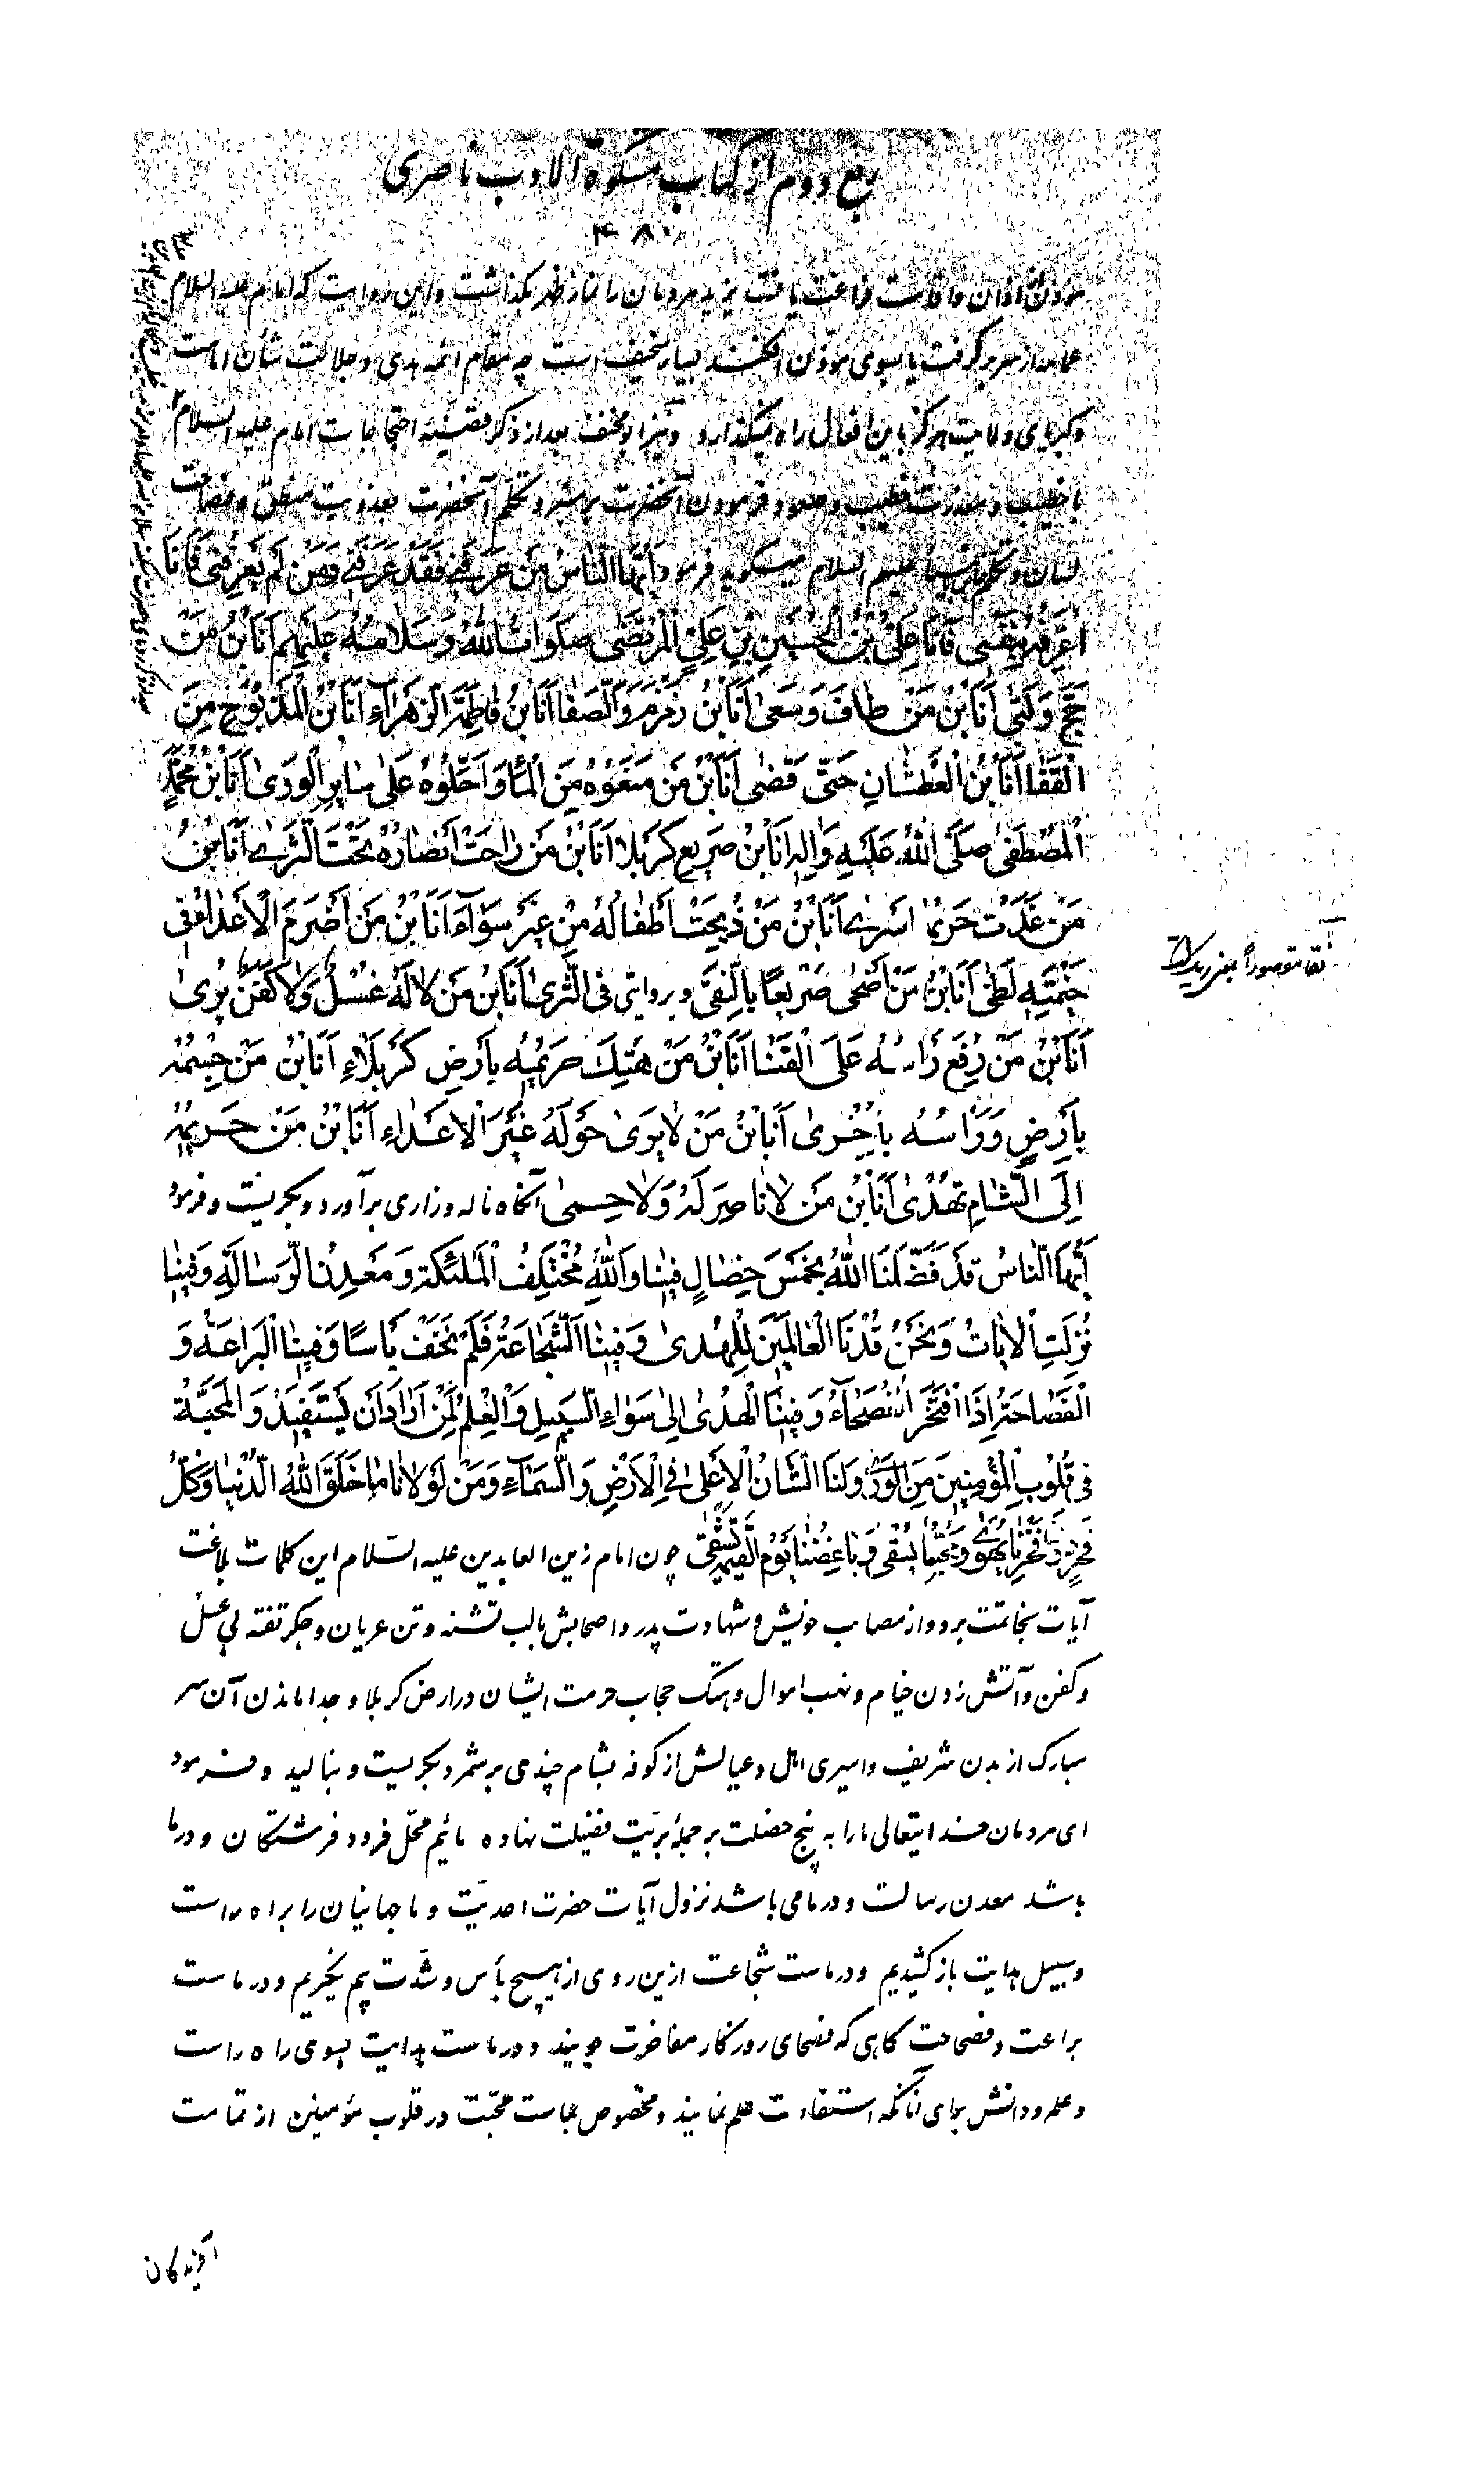 ربع دوم از کتاب مشکوة الادب ناصری
۴۸۰
مؤذن از اذان و اقامت فراغت یافت یزید مردمان را نماز ظهر بگذاشت و این روایت که امام علیه السلام
عمامه از سر بر گرفت یا بسوی مؤذن افکند بسیار سخیف است چه مقام ائمه هدی و جلالت شأن امامت
و کبریای ولایت هرگز باین افعال راه نمیگذارد و نیز ابو مخنف بعد از ذکر قضیه احتجاجات امام علیه السلام
با خطیب و معذرت خطیب و صعود فرمودن آنحضرت بر منبر و تکلم آنحضرت بعذوبت منطق و فصاحت
لسان و تکلم علیهم السلام میگوید فرمود أَیُّهَا النّاسُ مَنْ عَرَفَنی فَقَدْ عَرَفَنی وَمَنْ لَمْ یَعْرِفْنی فَاَنَا
اُعَرِّفُهُ بِنَفْسی فَاَنَا عَلِیُّ بْنُ الْحُسَیْنِ بْنِ عَلِیٍّ الْمُرْتَضی صَلَواتُ اللهِ وَسَلامُهُ عَلَیْهِم اَنَا بْنُ مَنْ
حَجَّ وَلَبّی اَنَا بْنُ مَنْ طافَ وَسَعی اَنَا بْنُ زَمْزَمَ وَالصَّفا اَنَا بْنُ فاطِمَةَ الزَّهْرآءِ اَنَا بْنُ الْمَذْبُوحِ مِنَ
الْقَفا اَنَا بْنُ الْعَطْشانِ حَتّی قَضی اَنَا بْنُ مَنْ مَنَعُوهُ مِنَ الْمآءِ وَاَحَلُّوهُ عَلی سایِرِ الْوَری اَنَا بْنُ مُحَمَّدٍ
الْمُصْطَفی صَلَّی اللهُ عَلَیْهِ وَالِهِ اَنَا بْنُ صَریعِ کَرْبَلا اَنَا بْنُ مَنْ راحَتْ اَنْصارُهُ تَحْتَ الثَّری اَنَا بْنُ
مَنْ غَدَتْ حَریمُهُ اَسْری اَنَا بْنُ مَنْ ذُبِحَتْ اَطْفالُهُ مِنْ غَیْرِ سَوآءٍ اَنَا بْنُ مَنْ اَضْرَمَ الْاَعْداءُ فی
خَیْمَتِهِ لَظی اَنَا بْنُ مَنْ اَضْحی صَریعًا بِالنَّقی و بروایتی فی الثَّری اَنَا بْنُ مَنْ لا لَهُ غُسْلٌ وَلا کَفَنٌ یُری
اَنَا بْنُ مَنْ رُفِعَ رَأسُهُ عَلَی الْقَنا اَنَا بْنُ مَنْ هُتِکَ حَریمُهُ بِاَرْضِ کَرْبَلاءِ اَنَا بْنُ مَنْ جِسْمُهُ
بِاَرْضٍ وَرَأسُهُ بِاُخْری اَنَا بْنُ مَنْ لا یَری حَوْلَهُ غَیْرَ الْاَعْداءِ اَنَا بْنُ مَنْ حَریمُهُ
اِلَی الشّامِ تُهْدی اَنَا بْنُ مَنْ لا ناصِرَ لَهُ وَلا حِمی آنگاه ناله و زاری برآورد و بگریست و فرمود
اَیُّهَا النّاسُ قَدْ فَضَّلَنَا اللهُ بِخَمْسِ خِصالٍ فینا وَاللهِ مُخْتَلَفُ الْمَلٰئِکَةِ وَمَعْدِنُ الرِّسالَةِ وَفینا
نَزَلَتِ الْایاتُ وَنَحْنُ قُدْنَا الْعالَمینَ لِلْهُدی وَفینَا الشَّجاعَةُ فَلَمْ نَخَفْ بَأسًا وَفینَا الْبَراعَةُ وَ
الْفَصاحَةُ اِذَا افْتَخَرَ الْفُصَحآءُ وَفینَا الْهُدی اِلی سَواءِ السَّبیلِ وَالْعِلْمُ لِمَنْ اَرادَ اَنْ یَسْتَفیدَ وَالْمَحَبَّةُ
فی قُلُوبِ الْمُؤْمِنینَ مِنَ الْوَری وَلَنَا الشَّانُ الْاَعْلی فِی الْاَرْضِ وَالسَّمآءِ وَمَنْ لَوْلانا ما خَلَقَ اللهُ الدُّنْیا وَکُلُّ
فَخْرٍ دُونَ فَخْرِنا یَهْوی وَمُحِبُّنا یُسْقی وَباغِضُنا یَوْمَ الْقِیمَةِ یَشْقی چون امام زین العابدین علیه السّلام این کلمات بلاغت
آیات بخاتمت برد و از مصایب خویش و شهادت پدر و اصحابش با لب تشنه و تن عریان و جگر تفته بی غسل
و کفن و آتش زدن خیام و نهب اموال و هتک حجاب حرمت ایشان در ارض کربلا و جدا ماندن آن سر
مبارک از بدن شریف و اسیری اهل و عیالش از کوفه بشام چندی برشمرد بگریست و بنالید و فرمود
ای مردمان خداوند تعالی ما را به پنج خصلت بر جملهٔ بریّت فضیلت نهاده مائیم محلّ فرود فرشتگان و در ما
باشد معدن رسالت و در ما می باشد نزول آیات حضرت احدیّت و ما جهانیان را براه راست
و سبیل هدایت باز کشیدیم و در ماست شجاعت ازین روی از هیچ بأس و شدّت بیم نخوریم و در ماست
براعت و فصاحت گاهی که فصحای روزگار مفاخرت جویند و در ماست هدایت بسوی راه راست
و علم و دانش برای آنانکه استفادت علم نمایند و مخصوص بماست محبّت در قلوب مؤمنین از تمامت
آفریدگان